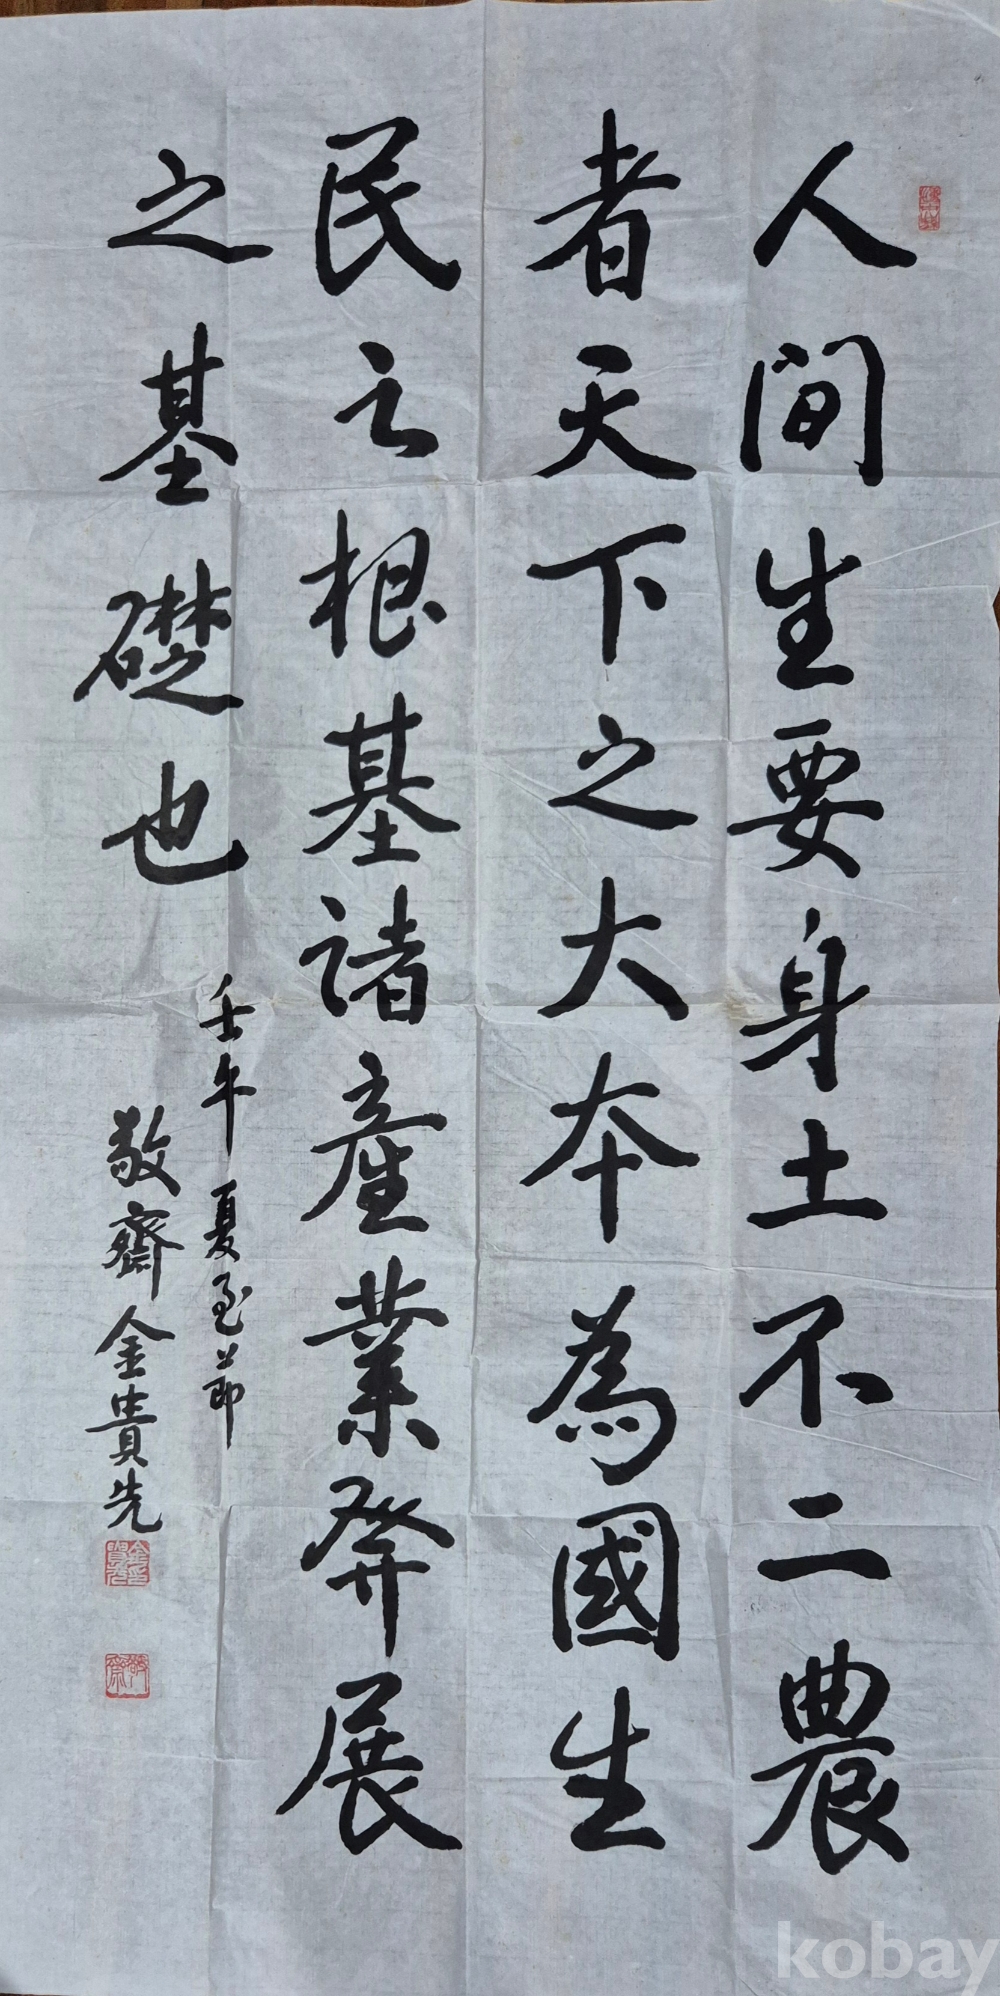 人間生要身土不二農
者天下之大本為國生
民之根基諸產業發展
之基礎也
壬午 夏至節
敬齋 金貴先
kobay